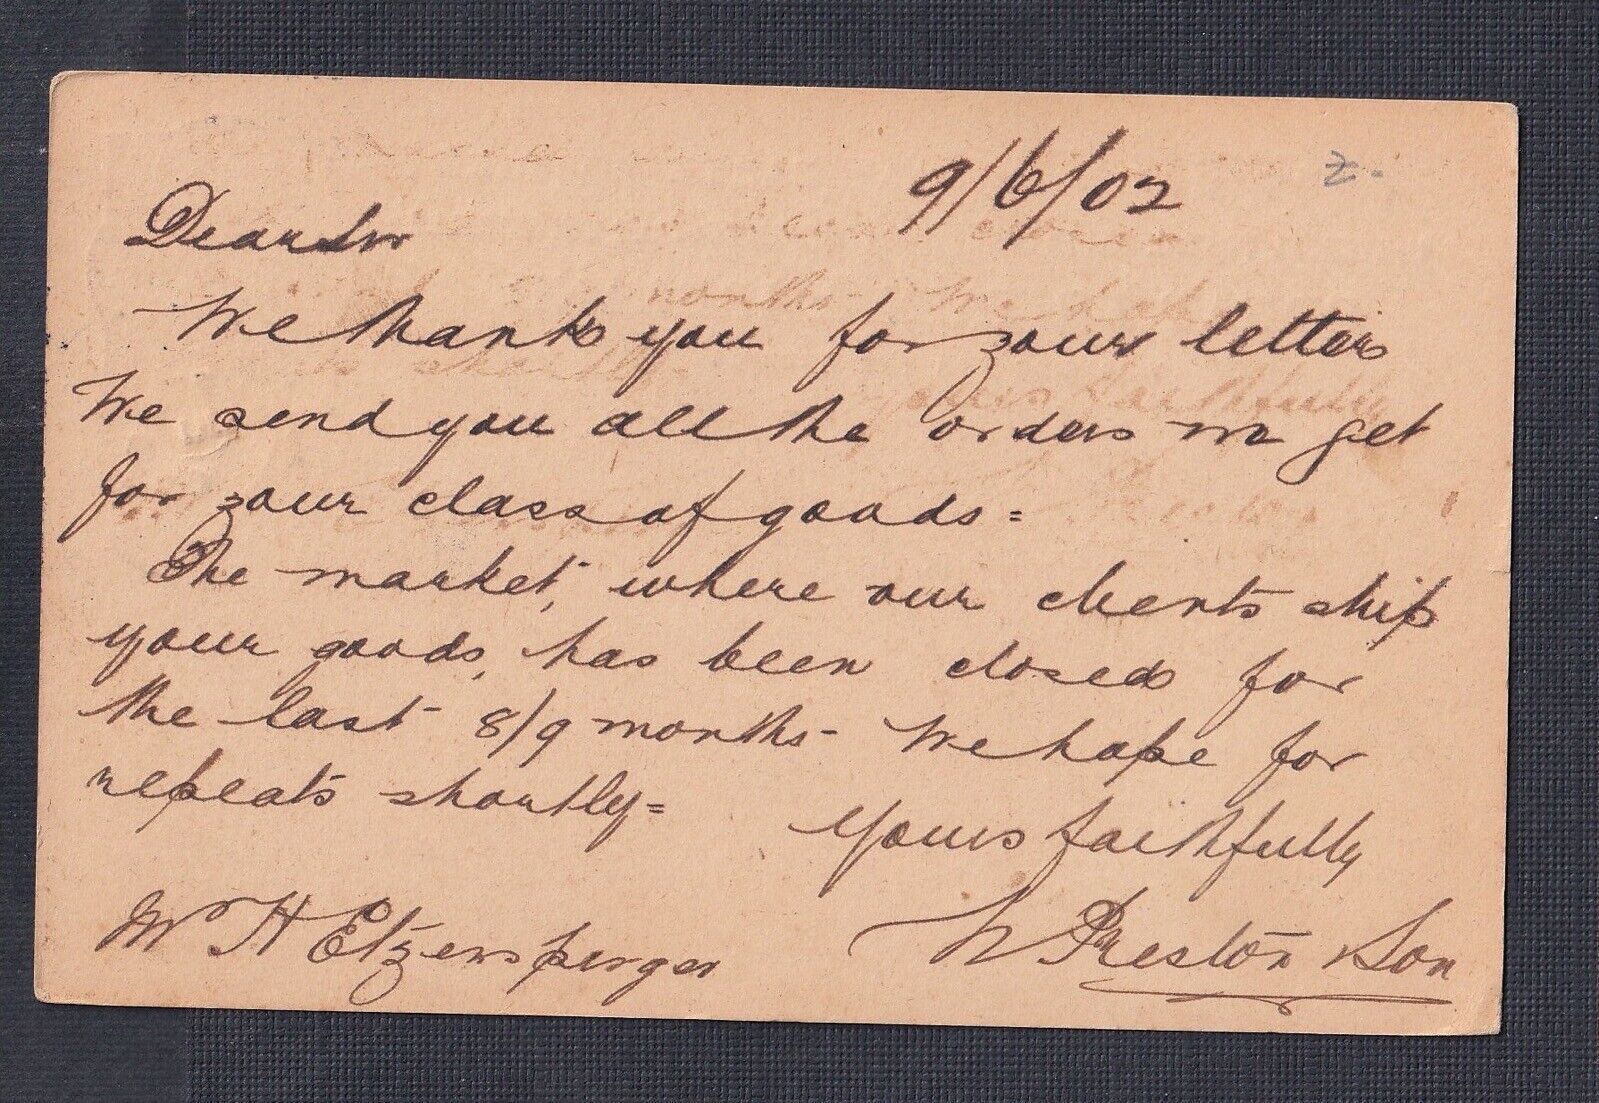 9/6/02
z.
Dear Sir
We thank you for your letters
We send you all the orders we get
for your class of goods =
The market, where our clients ship
your goods, has been closed for
the last 8/9 months - We hope for
repeats shortly =
Yours faithfully
Preston & Son
Mr H Etzensperger